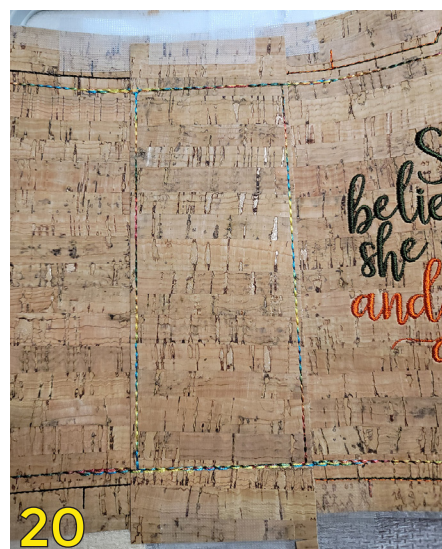 S
belie
she
and
20